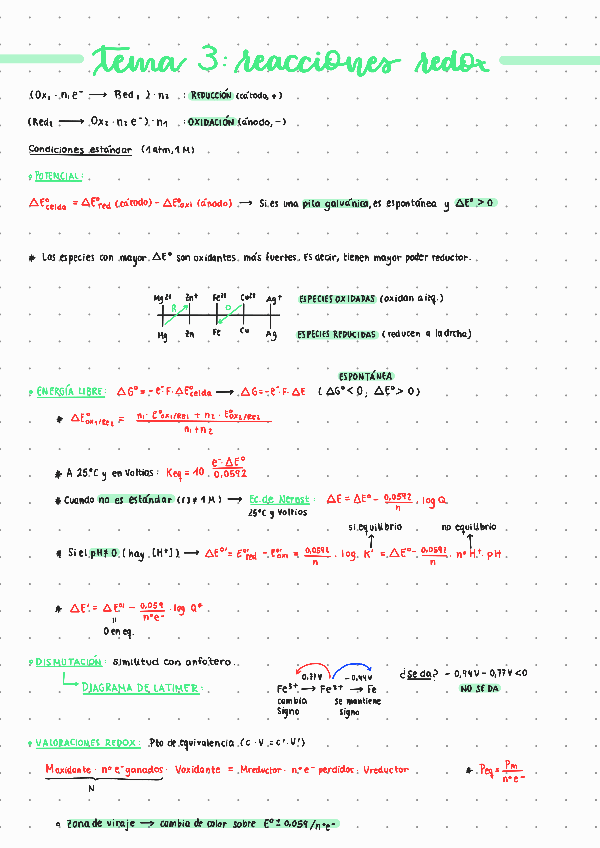 Tema 3: reacciones redox
(Ox₁ · n₁ e⁻ ⟶ Red₁) · n₂ : REDUCCIÓN (cátodo, +)
(Red₂ ⟶ Ox₂ · n₂ e⁻) · n₁ : OXIDACIÓN (ánodo, −)
Condiciones estándar (1 atm, 1 M)
POTENCIAL:
ΔE°celda = ΔE°red (cátodo) − ΔE°oxi (ánodo) ⟶ Si es una pila galvánica, es espontánea y ΔE° > 0
* Las especies con mayor ΔE° son oxidantes más fuertes. Es decir, tienen mayor poder reductor.
Mg²⁺ Zn⁺ Fe²⁺ Cu²⁺ Ag⁺ ESPECIES OXIDADAS (oxidan a izq.)
R O
Mg Zn Fe Cu Ag ESPECIES REDUCIDAS (reducen a la drcha)
ESPONTÁNEA
ENERGÍA LIBRE: ΔG° = −e⁻·F·ΔE°celda ⟶ ΔG = −e⁻·F·ΔE (ΔG° < 0; ΔE° > 0)
* ΔE°ox1/Re2 = n₁ · E°ox1/Re1 + n₂ · E°ox2/Re2 / n₁ + n₂
* A 25°C y en Voltios: Keq = 10 · e⁻·ΔE° / 0,0592
* Cuando no es estándar ([ ] ≠ 1 M) ⟶ Ec. de Nerst: ΔE = ΔE° − 0,0592 / n · log Q
25°C y Voltios
si equilibrio no equilibrio
* Si el pH ≠ 0 (hay [H⁺]) ⟶ ΔE°' = E°'red − E°'oxi = 0,0592 / n · log K' = ΔE° − 0,0592 / n · n° H⁺ · pH
* ΔE' = ΔE°' − 0,059 / n°e⁻ · log Q*
0 en eq.
DISMUTACIÓN: similitud con anfótero.
DIAGRAMA DE LATIMER:
0,77V −0,44V ¿Se da? −0,44V − 0,77V < 0
Fe³⁺ ⟶ Fe²⁺ ⟶ Fe NO SE DA
cambia se mantiene
signo signo
VALORACIONES REDOX: Pto de equivalencia (c · V = c' · V')
Moxidante · n° e⁻ ganados · Voxidante = Mreductor · n° e⁻ perdidos · Vreductor * Peq = Pm / n°e⁻
N
Zona de viraje ⟶ cambia de color sobre E° ± 0,059/n°e⁻